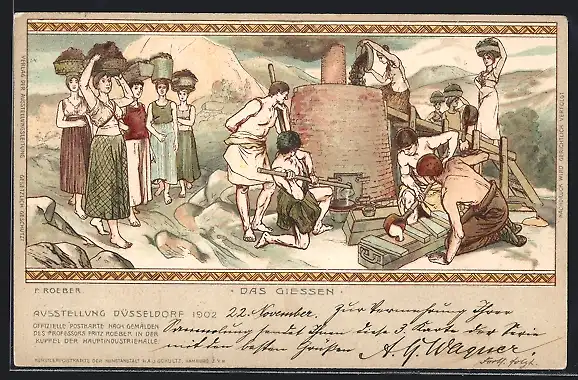 VERLAG DER AUSSTELLUNGSZEITUNG GESETZLICH GESCHÜTZT
NACHDRUCK WIRD GERICHTLICH VERFOLGT
F. ROEBER.
· DAS GIESSEN ·
AUSSTELLUNG DÜSSELDORF 1902
OFFIZIELLE POSTKARTE NACH GEMÄLDEN
DES PROFESSORS FRITZ ROEBER IN DER
KUPPEL DER HAUPTINDUSTRIEHALLE
22. November. Zur Vermehrung Ihrer
Sammlung sendet Ihnen diese 3. Karte der Serie
mit den besten Grüßen A. G. Wagner.